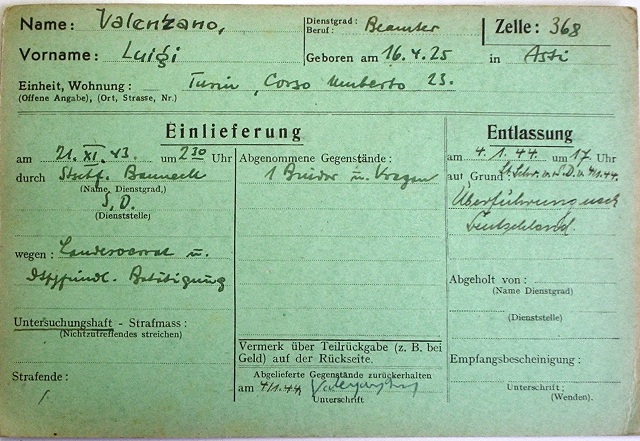 Name: Valenzano, Dienstgrad: Beamter Zelle: 368
Beruf:
Vorname: Luigi Geboren am 16.4.25 in Asti
Einheit, Wohnung: Turin, Corso Umberto 23.
(Offene Angabe), (Ort, Strasse, Nr.)
Einlieferung
am 21.XI.43. um 2 30 Uhr
durch
(Name, Dienstgrad,)
S.D.
(Dienststelle)
wegen: Landesverrat u.
Betätigung
Untersuchungshaft - Strafmass:
(Nichtzutreffendes streichen)
Strafende:
Abgenommene Gegenstände:
1 u. Kragen
Vermerk über Teilrückgabe (z. B. bei
Geld) auf der Rückseite.
Abgelieferte Gegenstände zurückerhalten
am 4/1.44.
Unterschrift
Entlassung
am 4.1.44. um 17 Uhr
auf Grund S.D. v. 4/1.44.
Überführung nach
Deutschland.
Abgeholt von:
(Name Dienstgrad)
(Dienststelle)
Empfangsbescheinigung:
Unterschrift:
(Wenden).